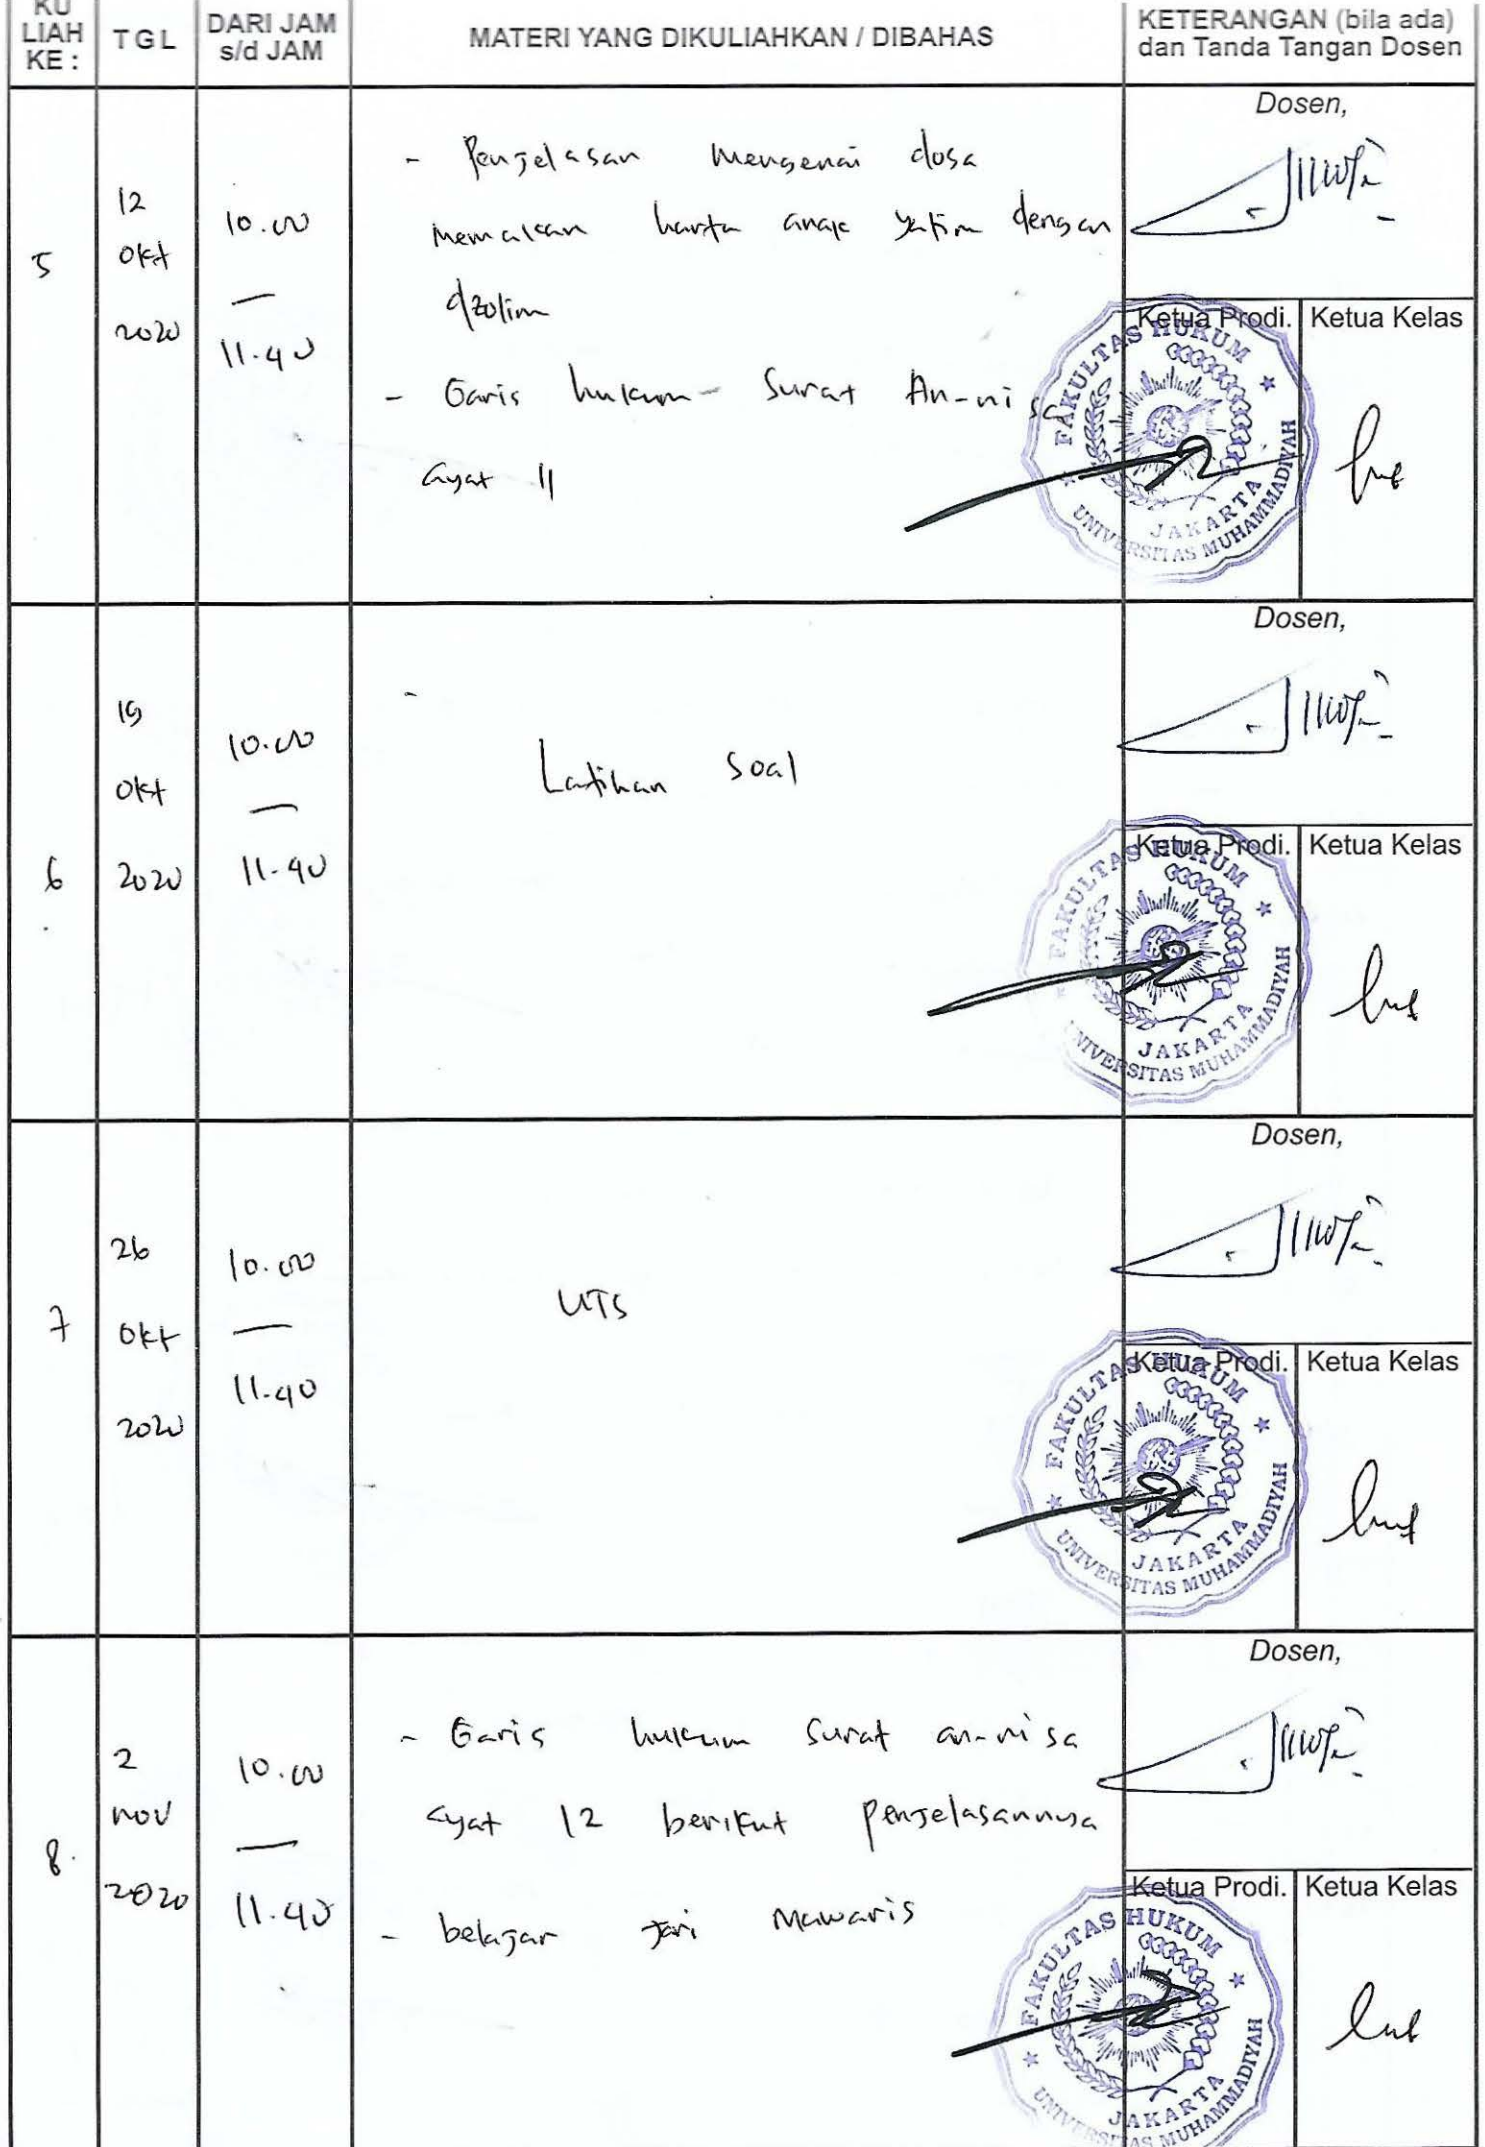 KU
LIAH
KE :
TGL
DARI JAM
s/d JAM
MATERI YANG DIKULIAHKAN / DIBAHAS
KETERANGAN (bila ada)
dan Tanda Tangan Dosen
5
12
okt
2020
10.00
—
11.40
- Penjelasan mengenai dosa
memakan harta anak yatim dengan
dzolim
- Garis hukum - Surat An-nisa
ayat 11
Dosen,
Ketua Prodi.
Ketua Kelas
FAKULTAS HUKUM
UNIVERSITAS MUHAMMADIYAH
JAKARTA
6
19
okt
2020
10.00
—
11.40
-
Latihan soal
Dosen,
Ketua Prodi.
Ketua Kelas
FAKULTAS HUKUM
UNIVERSITAS MUHAMMADIYAH
JAKARTA
7
26
okt
2020
10.00
—
11.40
UTS
Dosen,
Ketua Prodi.
Ketua Kelas
FAKULTAS HUKUM
UNIVERSITAS MUHAMMADIYAH
JAKARTA
8.
2
nov
2020
10.00
—
11.40
- Garis hukum surat an-nisa
ayat 12 berikut penjelasannya
- belajar jari mawaris
Dosen,
Ketua Prodi.
Ketua Kelas
FAKULTAS HUKUM
UNIVERSITAS MUHAMMADIYAH
JAKARTA